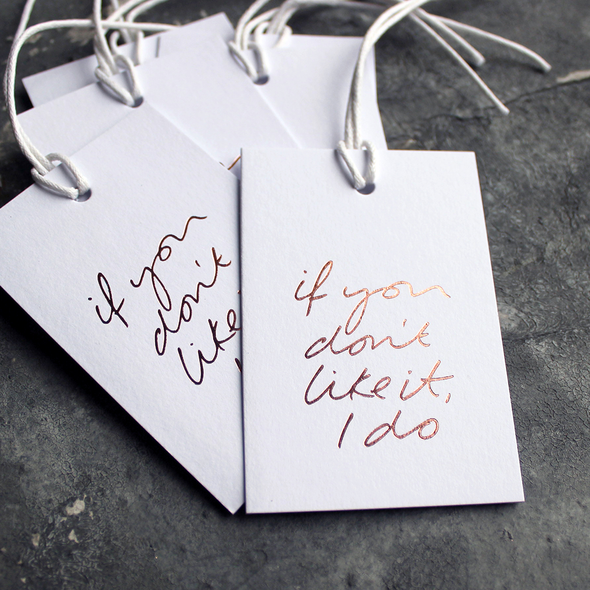 if you
don't
like it,
I do
if you
don't
like